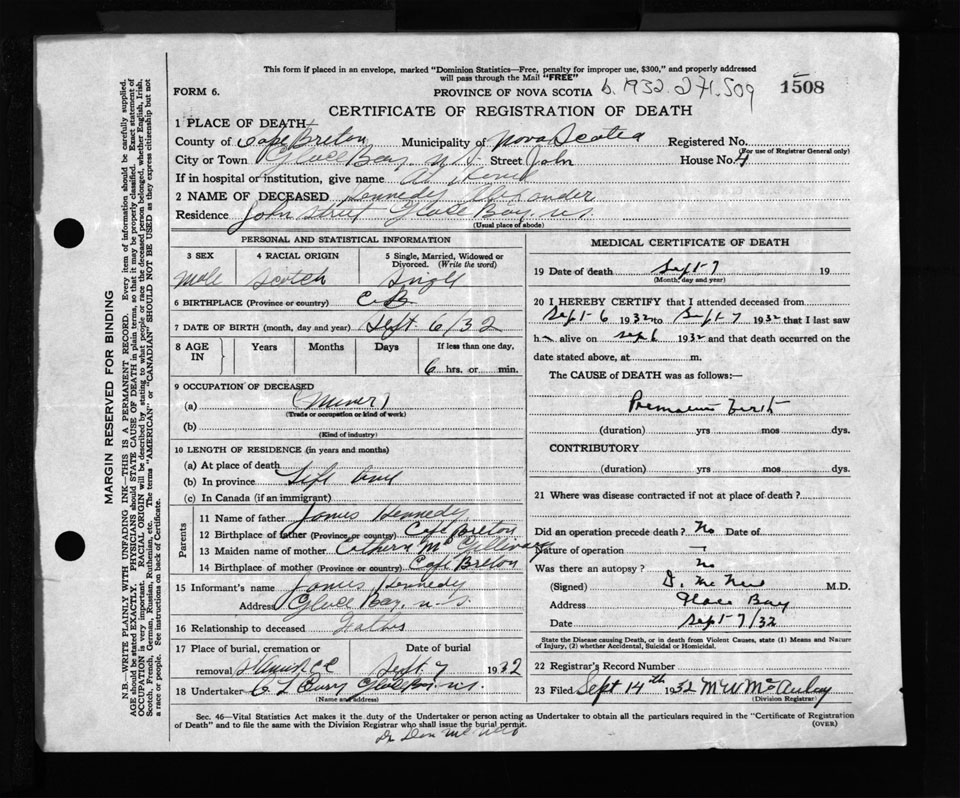 This form if placed in an envelope, marked "Dominion Statistics—Free, penalty for improper use, $300," and properly addressed
will pass through the Mail "FREE"
FORM 6. PROVINCE OF NOVA SCOTIA b. 1932. 1508
CERTIFICATE OF REGISTRATION OF DEATH
1 PLACE OF DEATH
County of Cape Breton Municipality of Nova Scotia Registered No.
(For use of Registrar General only)
City or Town Glace Bay N.S. Street John House No. 4
If in hospital or institution, give name At Home
2 NAME OF DECEASED Kennedy Alexander
Residence John Street Glace Bay. N.S.
(Usual place of abode)
PERSONAL AND STATISTICAL INFORMATION
3 SEX 4 RACIAL ORIGIN 5 Single, Married, Widowed or Divorced. (Write the word)
Male Scotch Single
6 BIRTHPLACE (Province or country) C.B.
7 DATE OF BIRTH (month, day and year) Sept. 6/32
8 AGE IN Years Months Days If less than one day,
6 hrs. or min.
9 OCCUPATION OF DECEASED
(a) (Miner)
(Trade or occupation or kind of work)
(b)
(Kind of industry)
10 LENGTH OF RESIDENCE (in years and months)
(a) At place of death
(b) In province Life time
(c) In Canada (if an immigrant)
Parents
11 Name of father James Kennedy
12 Birthplace of father (Province or country) Cape Breton
13 Maiden name of mother Catherine McGillivary
14 Birthplace of mother (Province or country) Cape Breton
15 Informant's name James Kennedy
Address Glace Bay. N.S.
16 Relationship to deceased Father
17 Place of burial, cremation or removal Date of burial
Sept. 7 1932
18 Undertaker Glace Bay. N.S.
(Name and address)
MEDICAL CERTIFICATE OF DEATH
19 Date of death Sept-7 19
(Month, day and year)
20 I HEREBY CERTIFY that I attended deceased from
Sept-6 1932 to Sept-7 1932 that I last saw
h alive on Sep 6 1932 and that death occurred on the
date stated above, at m.
The CAUSE of DEATH was as follows:—
Premature birth
(duration) yrs mos dys.
CONTRIBUTORY
(duration) yrs mos dys.
21 Where was disease contracted if not at place of death?
Did an operation precede death? No Date of
Nature of operation —
Was there an autopsy? No
(Signed) D. McNeil M.D.
Address Glace Bay
Date Sept-7/32
State the Disease causing Death, or in death from Violent Causes, state (1) Means and Nature
of Injury, (2) whether Accidental, Suicidal or Homicidal.
22 Registrar's Record Number
23 Filed Sept 14th 1932 M W McAulay
(Division Registrar)
Sec. 46—Vital Statistics Act makes it the duty of the Undertaker or person acting as Undertaker to obtain all the particulars required in the "Certificate of Registration
of Death" and to file the same with the Division Registrar who shall issue the burial permit. (OVER)
Dr Dan McNeil
MARGIN RESERVED FOR BINDING
N.B.—WRITE PLAINLY WITH UNFADING INK—THIS IS A PERMANENT RECORD. Every item of information should be carefully supplied.
AGE should be stated EXACTLY. PHYSICIANS should STATE CAUSE OF DEATH in plain terms, so that it may be properly classified. Exact statement of
OCCUPATION is very important. RACIAL ORIGIN will be described by stating to what people or race the deceased person belonged, whether English, Irish,
Scotch, French, German, Russian, Ruthenian, etc. The terms "AMERICAN" or "CANADIAN" SHOULD NOT BE USED as they express citizenship but not
a race or people. See instructions on back of Certificate.